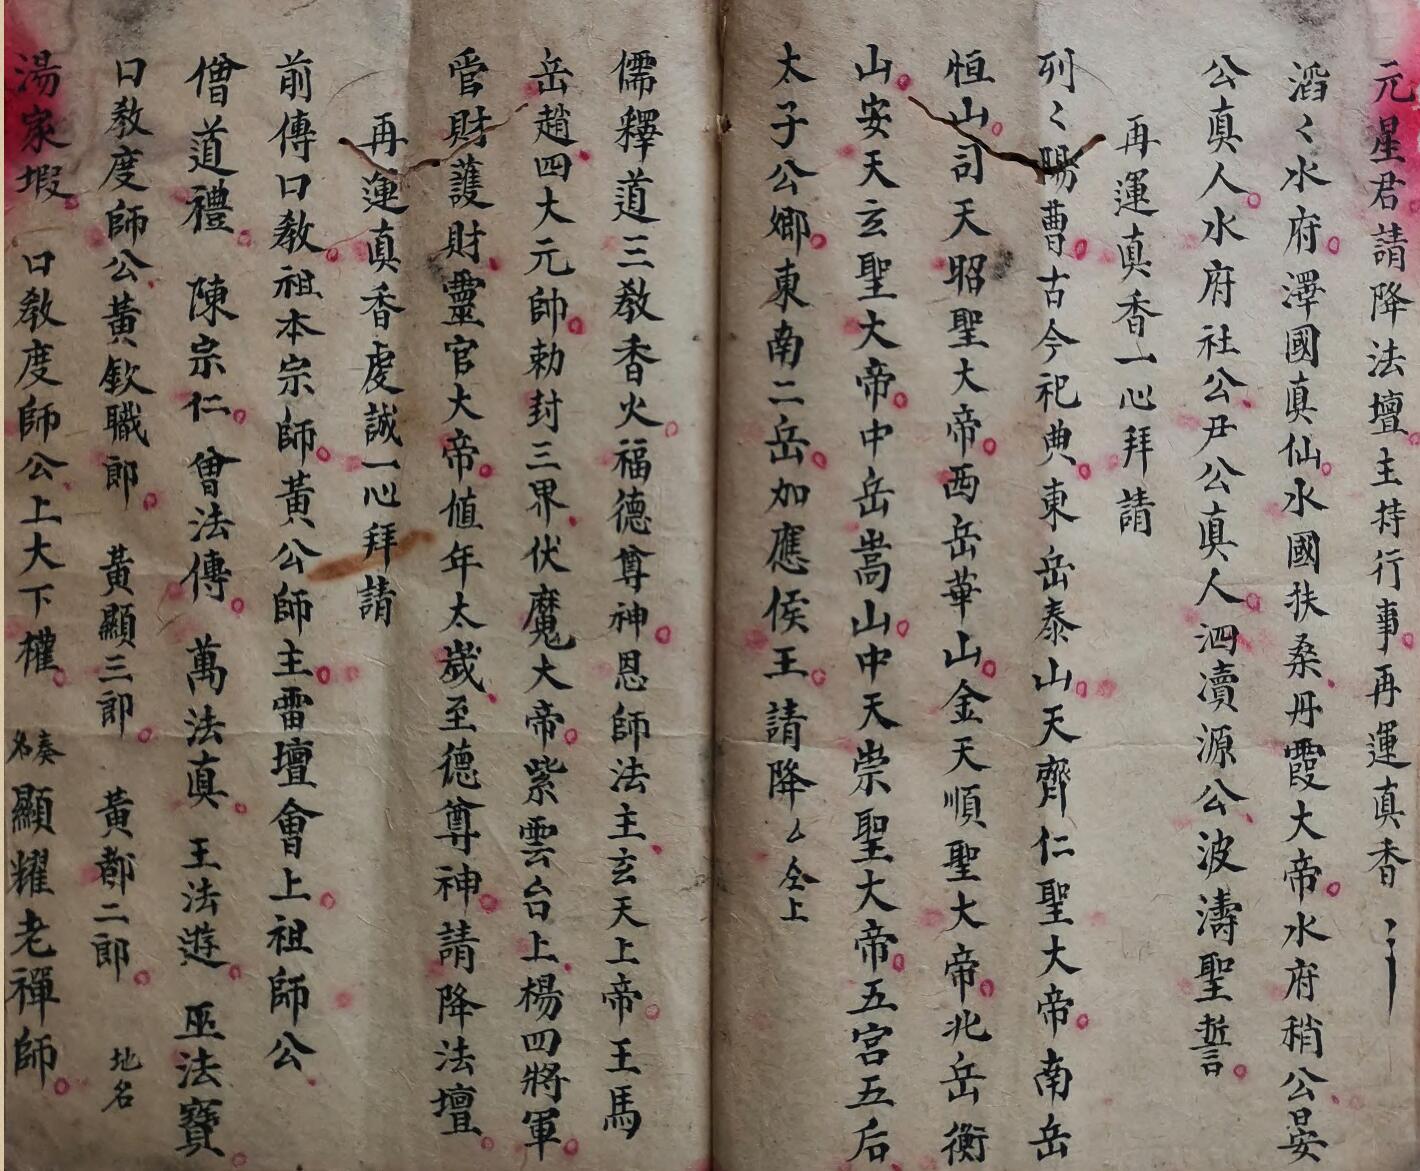 元星君請降法壇主持行事再運真香〻
滔〻水府澤國真仙水國扶桑丹霞大帝水府稍公晏
公真人水府社公尹公真人泗瀆源公波濤聖誓
再運真香一心拜請
列〻陽曹古今祀典東岳泰山天齊仁聖大帝南岳
恒山司天昭聖大帝西岳華山金天順聖大帝北岳衡
山安天玄聖大帝中岳嵩山中天崇聖大帝五宮五后
太子公鄉東南二岳加應侯王請降厶仝上
儒釋道三教香火福德尊神恩師法主玄天上帝王馬
岳趙四大元帥勅封三界伏魔大帝紫雲台上楊四將軍
管財護財靈官大帝值年太歲至德尊神請降法壇
再運真香虔誠一心拜請
前傳口教祖本宗師黃公師主雷壇會上祖師公
僧道禮 陳宗仁 曾法傳 萬法真 王法遊 巫法寶
口教度師公黃欽職郎 黃顯三郎 黃都二郎 地名
湯家塅 口教度師公上大下權 奏名顯耀老禪師